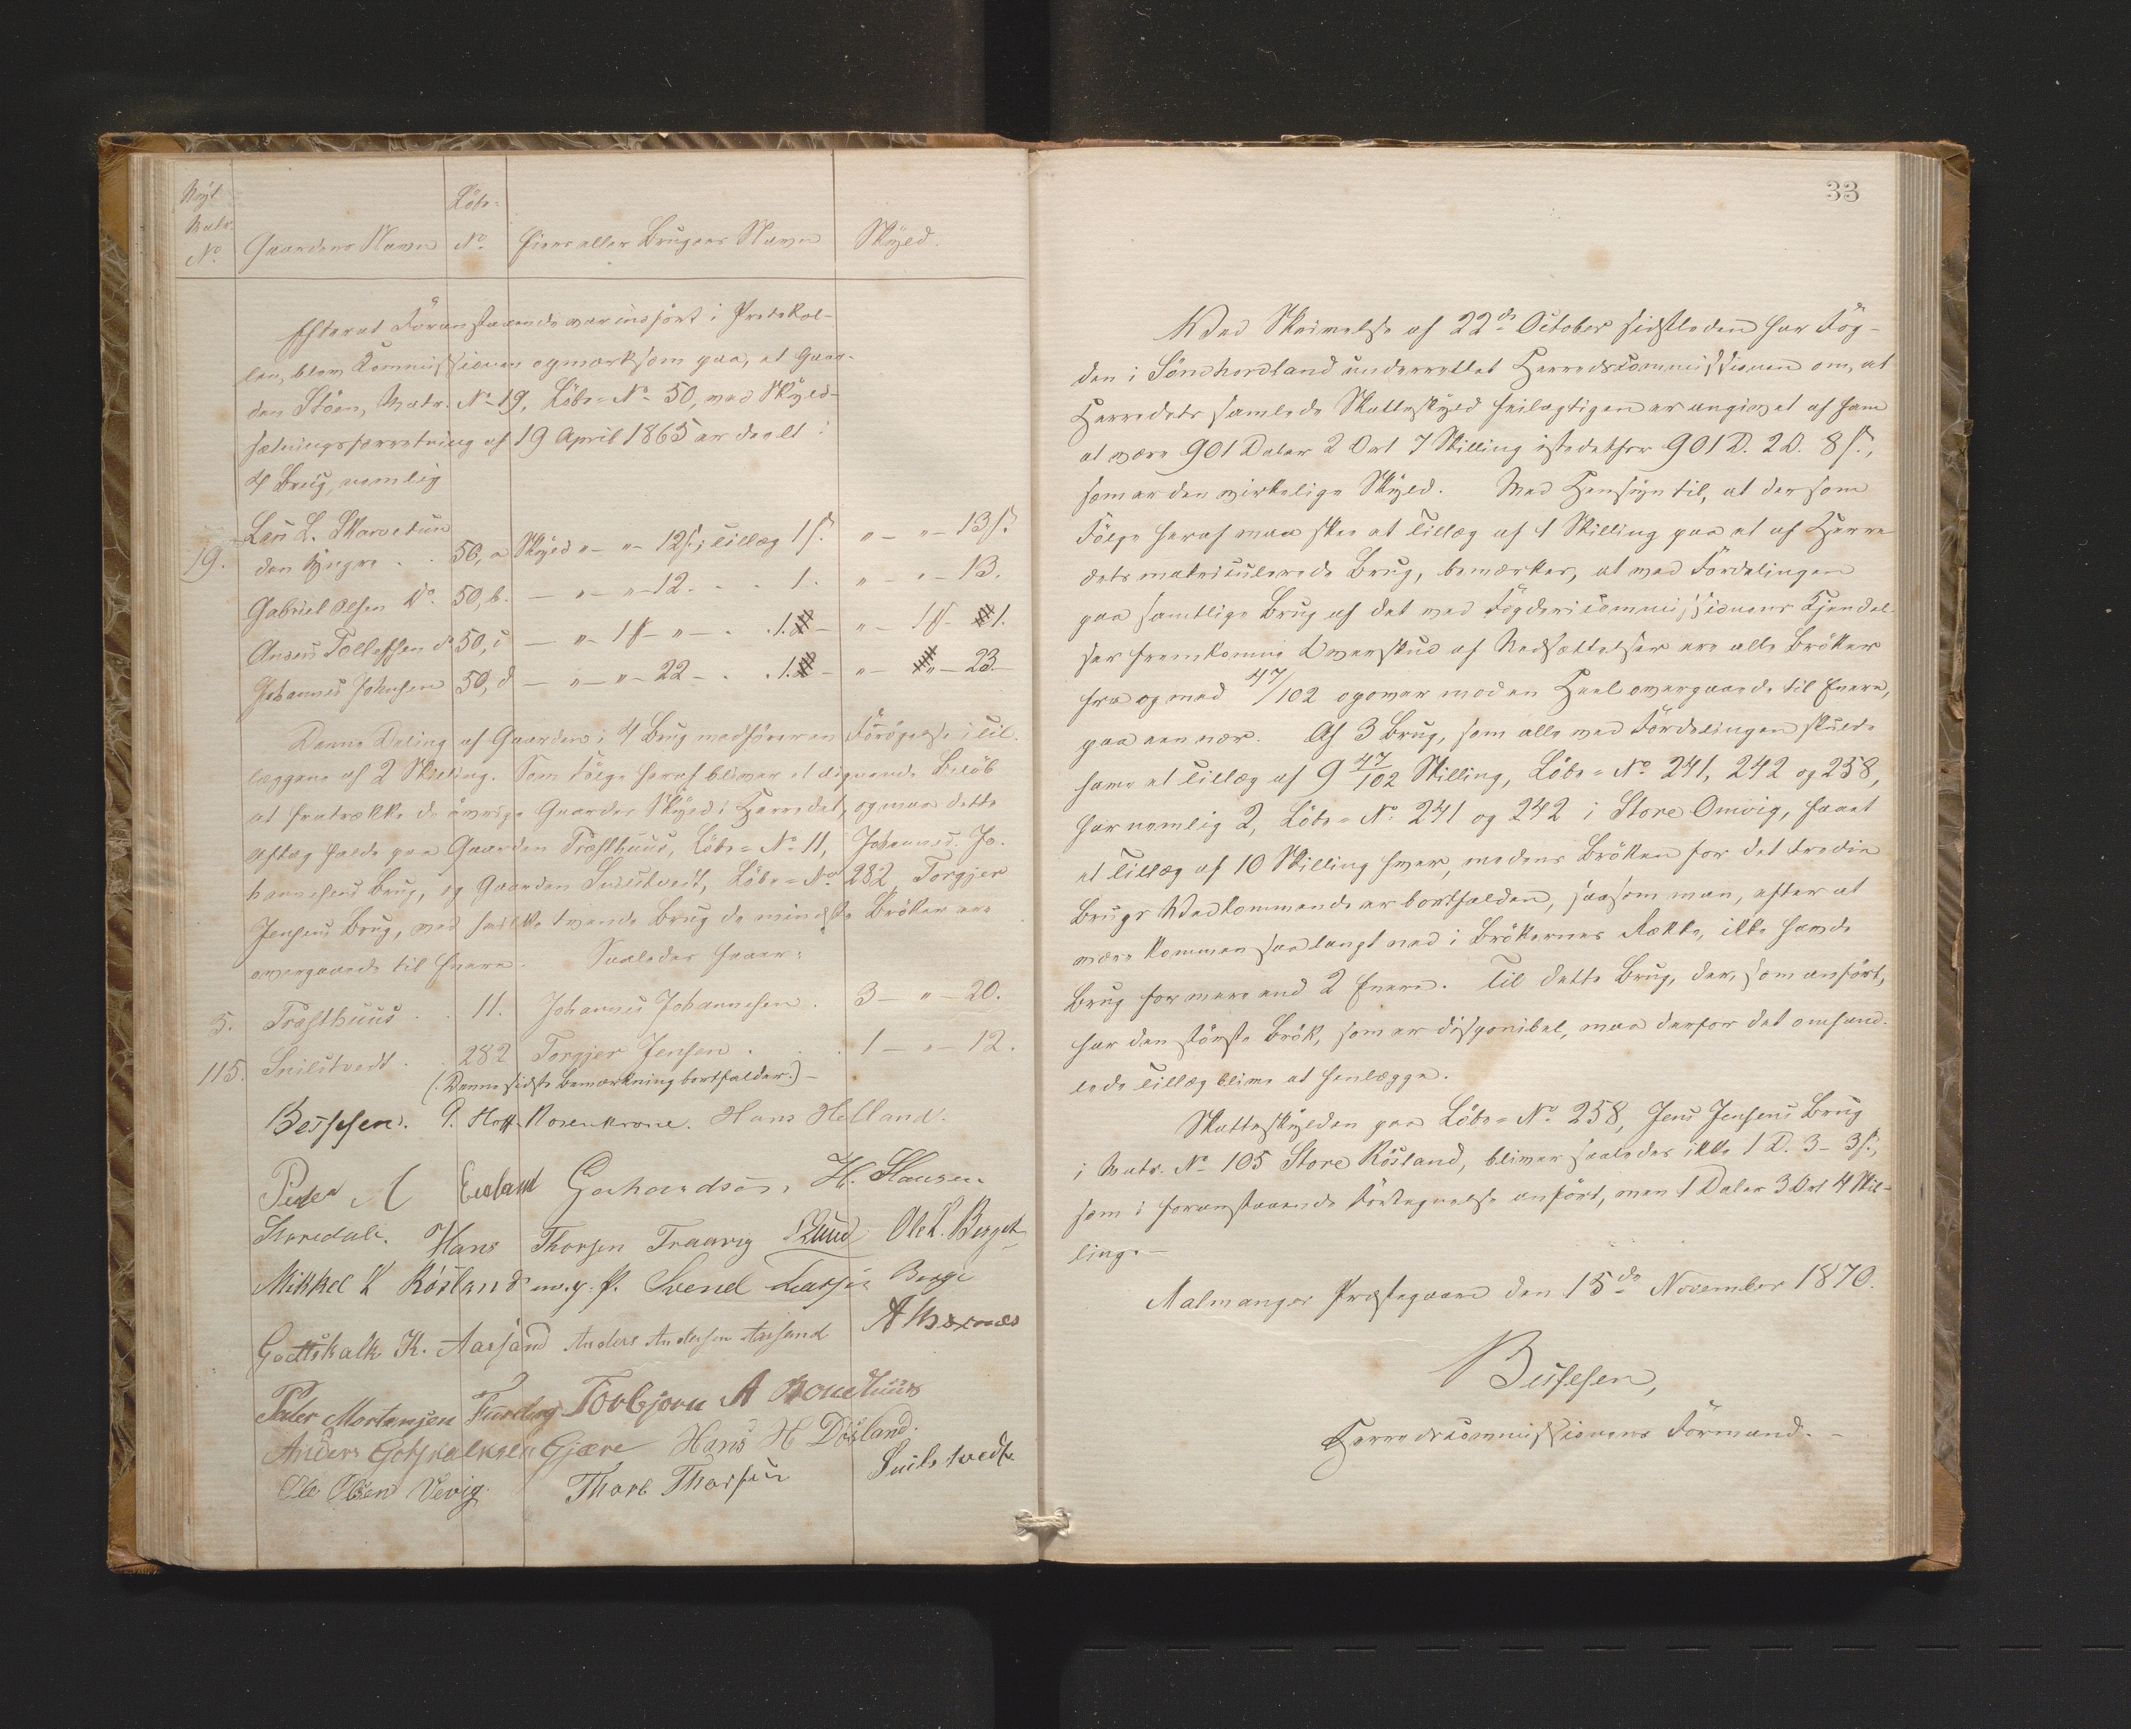 Nyt
Matr.
No
Gaardens Navn
Löbe-
No
Eiers eller Brugers Navn
Skyld.
Efterat Foranstaaende var indfört i Protokol-
len, blev Kommissionen opmærksom paa, at Gaar-
den Stöen, Matr. No 19, Löbe-No 50, ved Skyld-
sætningsforretning af 19 April 1865 er deelt i
4 Brug, nemlig
19. Lars L. Skarvetun
den Yngre . . 50, a Skyld " - " - 12 s.; Tillæg 1 s. " - " - 13 s.
Gabriel Olsen do. 50, b. - " - " - 12. . . 1. " - " - 13.
Anders Tollefsen do 50, c - " - 1 ß - " - . . 1. - " - 1 ß - 1.
Johannes Johnsen 50, d - " - " - 22 - . . 1. - " - " - 23 -
Denne Deling af Gaarden i 4 Brug medförer en Forögelse i Til-
læggene af 2 Skilling. Som Fölge heraf bliver et lignende Belöb
at fratrække de övrige Gaardes Skyld i Herredet, og maa dette
Aftag falde paa Gaarden Træsthuus, Löbe-No 11, Johannes Jo-
hannesens Brug, og Gaarden Snilstvedt, Löbe-No 282, Torgjer
Jensens Brug, ved hvilke tvende Brug de mindste Bröker ere
overgaaede til Enere. Saaledes haves:
5. Træsthuus . . 11. Johannes Johannesen . 3 - " - 20.
115. Snilstvedt . 282 Torgjer Jensen . . . 1 - " - 12.
(Denne sidste Bemærkning bortfalder.) -
Bessesen. P. Hoff-Rosenkrone. Hans Helland.
Peder M Eieland Gerhardsen, H. Hansen
Skaredale. Hans Thorsen Traavig Ruud Ole L. Berget
Mikkel K Rösland m. p. P. Svend Larsen Berge
Godtskalk K. Aarsand Anders Andersen Aarsand A Thernæs
Peder Mortensen Tureberg Torbjorn A Bonethuus
Anders Gotskalksen Gjære Hans H Dösland.
Ole Olsen Vevig Thore Thorsen Snilstvedt
33
Ved Skrivelse af 22de October sidstleden har Fog-
den i Söndhordland underrettet Herredskommissionen om, at
Herredets samlede Matteskyld feilagtigen er angivet af ham
at være 901 Daler 2 Ort 7 Skilling istedetfor 901 D. 2 O. 8 s.,
som er den virkelige Skyld. Med Hensyn til, at der som
Fölge heraf maa skee et Tillæg af 1 Skilling paa et af Herre-
dets matriculerede Brug, bemærkes, at ved Fordelingen
paa samtlige Brug af det ved Fogdericommissionens Kjendel-
ser fremkomne Overskud af Nedsættelser ere alle Bröker
fra og med 47/102 opover mod en Heel overgaaede til Enere,
paa een nær. Af 3 Brug, som alle ved Fordelingen skulde
have et Tillæg af 9 47/102 Skilling, Löbe-No 241, 242 og 258,
har nemlig 2, Löbe-No 241 og 242 i Store Omvig, faaet
et Tillæg af 10 Skilling hver, medens Bröken for det tredie
Brugs Vedkommende er bortfalden, saasom man, efter at
være kommen saa langt ned i Brökernes Række, ikke havde
Brug for mere end 2 Enere. Til dette Brug, der, som anfört,
har den störste Brök, som er disponibel, maa derfor det omhand-
lede Tillæg blive at henlægge.
Matteskylden paa Löbe-No 258, Jens Jensens Brug
i Matr. No 105 Store Rösland, bliver saaledes ikke 1 D. 3 - 3 s.,
som i foranstaaende Fortegnelse anfört, men 1 Daler 3 Ort 4 Skil-
ling. -
Malmanger Præstegaard den 15de November 1870.
Bessesen,
Herredscommissionens Formand. -